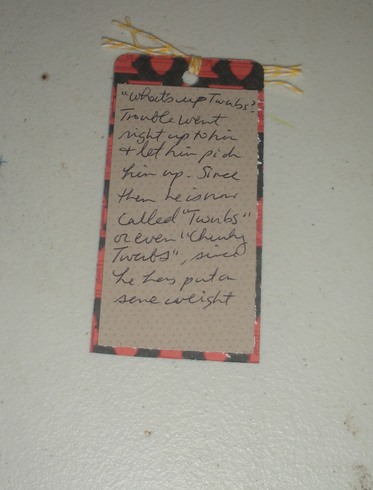 "What's up Twubs?"
Trouble went
right up to him
& let him pick
him up. Since
then he is now
called "Twubs"
or even "Chunky
Twubs", since
he has put on
some weight